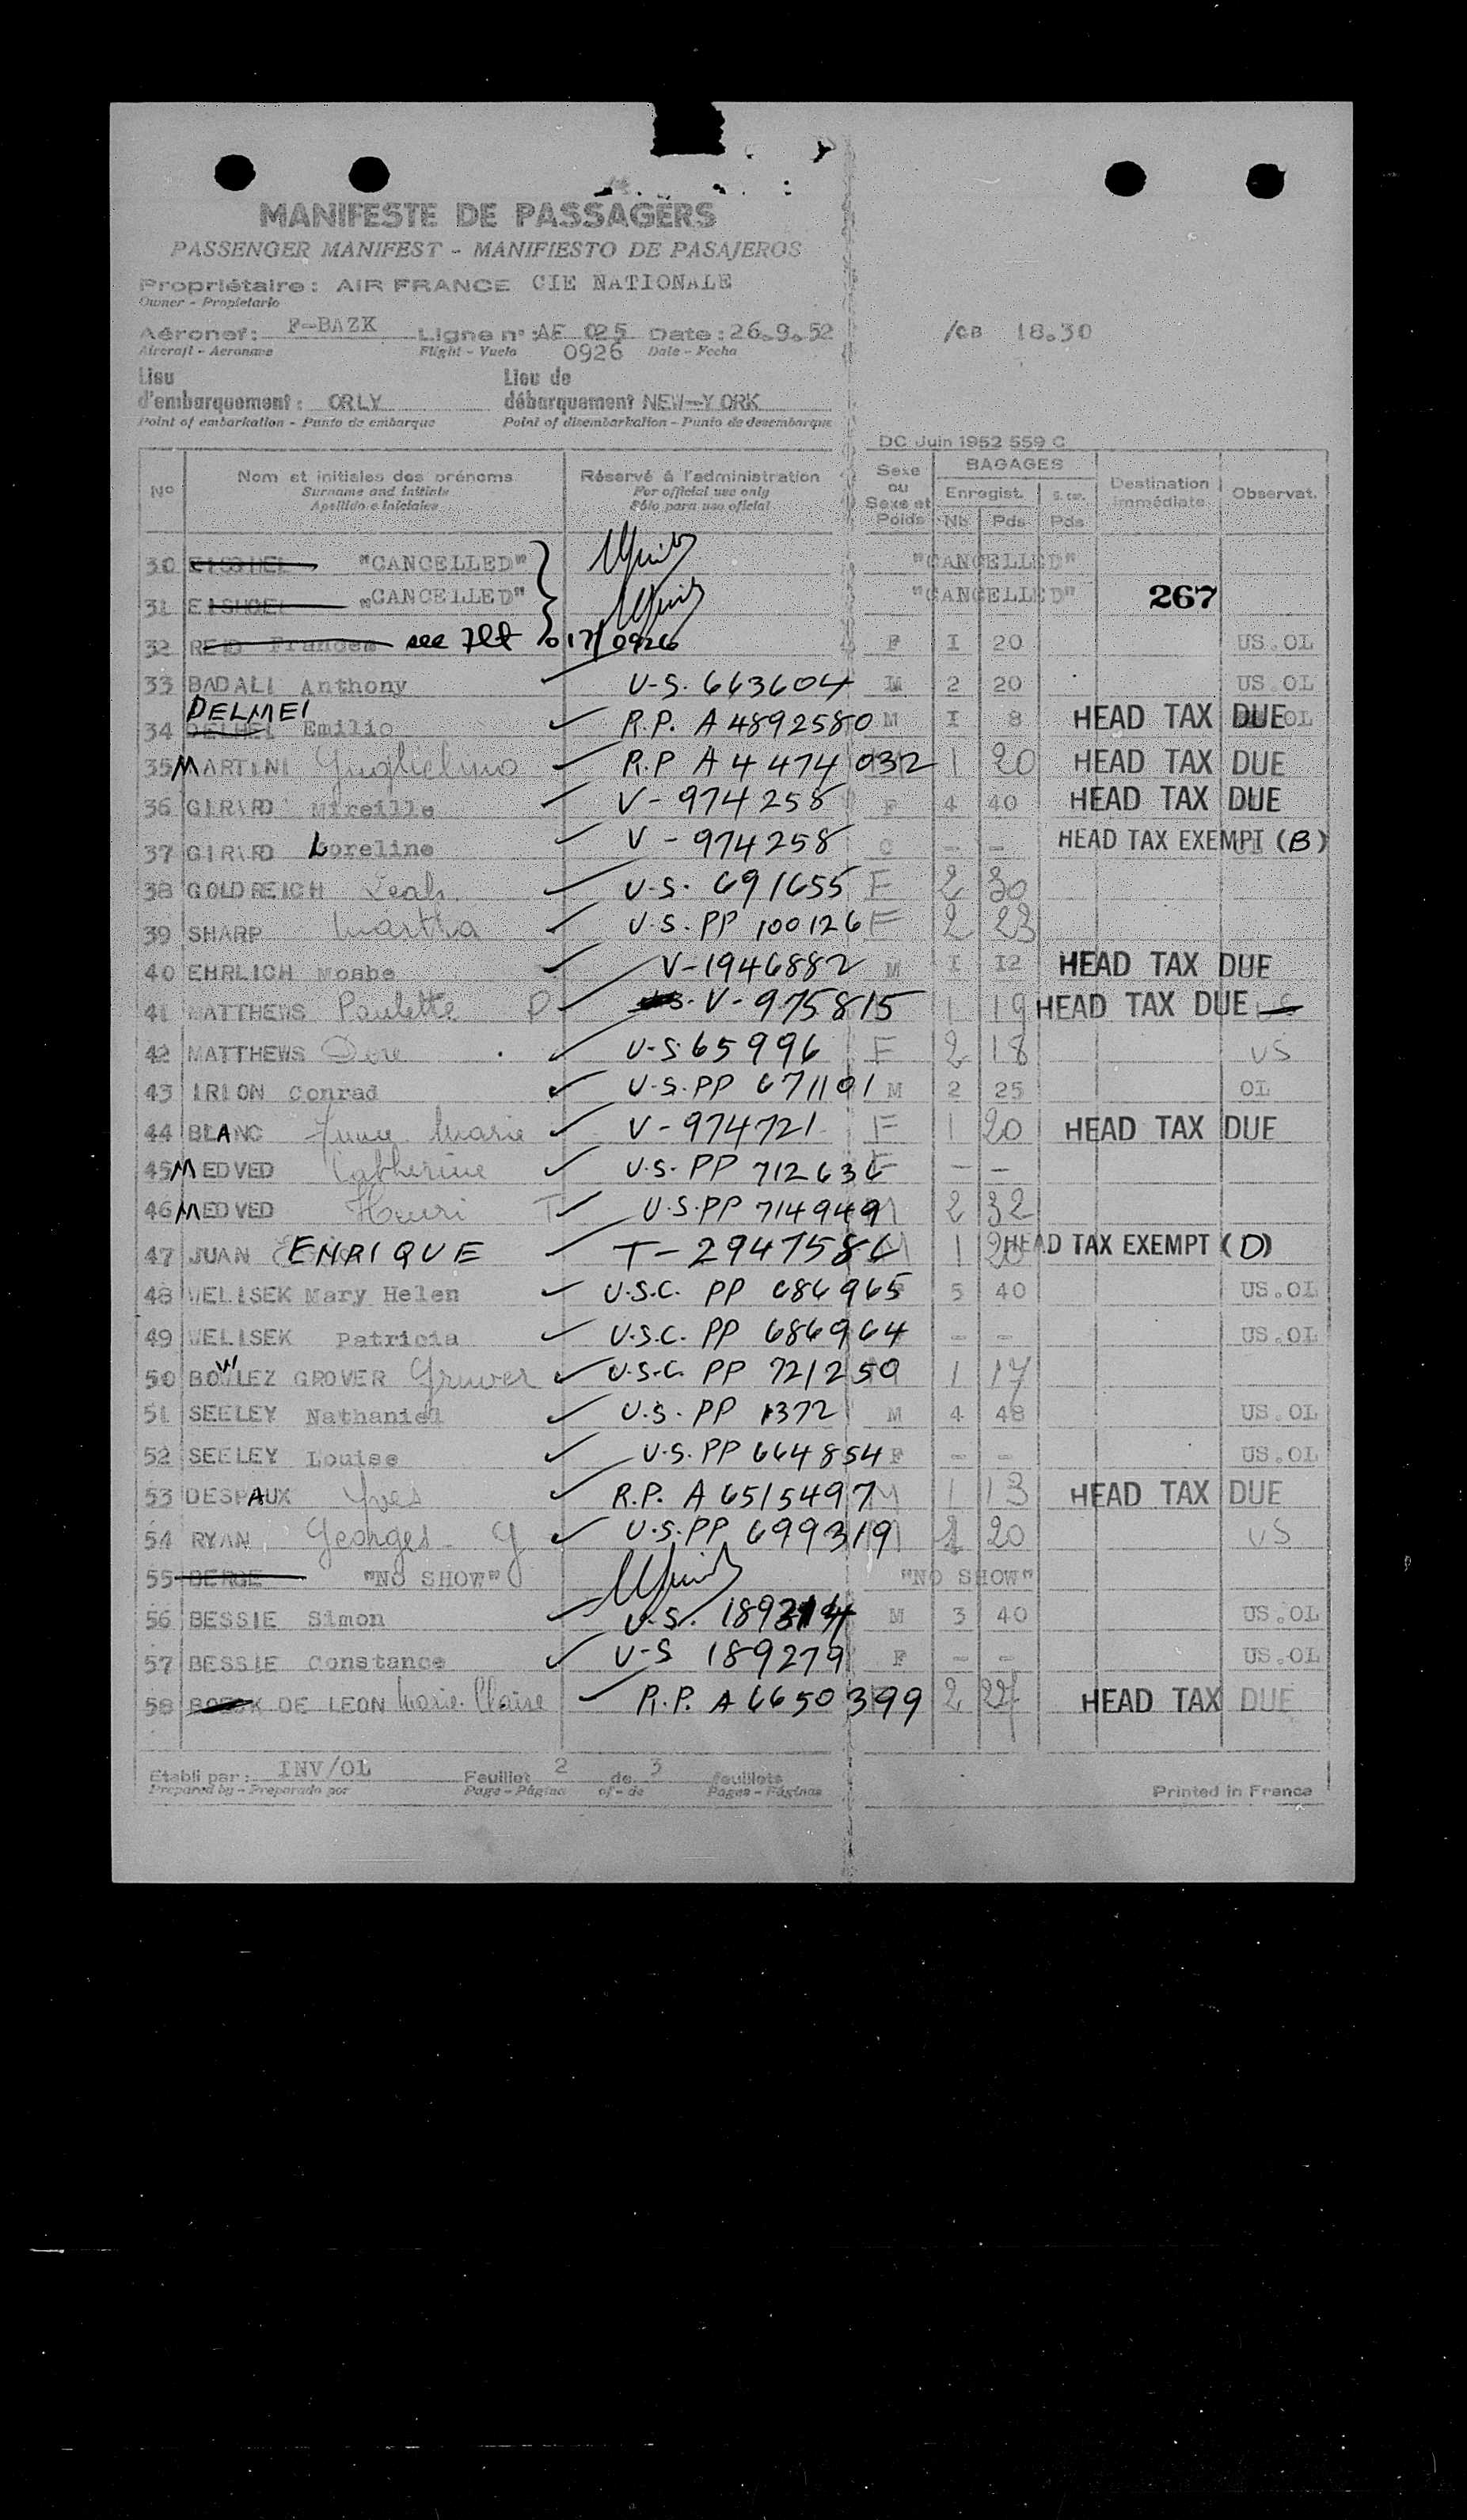 MANIFESTE DE PASSAGERS
PASSENGER MANIFEST - MANIFIESTO DE PASAJEROS
Propriétaire: AIR FRANCE CIE NATIONALE
Owner - Propietario
Aéronef: F-BAZK Ligne n°: AF 025 Date: 26.9.52 /CB 18.30
Aircraft - Aeronave Flight - Vuelo 0926 Date - Fecha
Lieu d'embarquement: ORLY Lieu de débarquement NEW-YORK
Point of embarkation - Punto de embarque Point of disembarkation - Punto de desembarque
DC Juin 1952 559 C
N° Nom et initiales des prénoms Réservé à l'administration Sexe ou Sexe et Poids BAGAGES Destination immédiate Observat.
Surname and initials For official use only Enregist.
Apellido e iniciales Sólo para uso oficial Nb Pds Pds
30 "CANCELLED" "CANCELLED"
31 "CANCELLED" "CANCELLED" 267
32 REID Frances see Flt 017/0926 F I 20 US.OL
33 BADALI Anthony U-S. 663604 M 2 20 US.OL
DELMEI
34 Emilio R.P. A4892580 M I 8 HEAD TAX DUE OL
35 MARTINI Guglielmo R.P A4 474 032 1 20 HEAD TAX DUE
36 GIRARD Mireille V-974258 F 4 40 HEAD TAX DUE
37 GIRARD Loreline V-974258 C - - HEAD TAX EXEMPT (B)
38 GOLDREICH Leah U.S. 691655 F 2 30
39 SHARP Martha U.S.PP 100126 F 2 23
40 EHRLICH Moshe V-1946882 M I I2 HEAD TAX DUE
41 MATTHEWS Paulette P V-975815 1 19 HEAD TAX DUE US
42 MATTHEWS Dore U-S 65996 F 2 18 US
43 IRION Conrad U.S.PP 671101 M 2 25 OL
44 BLANC Marie V-974721 F 1 20 HEAD TAX DUE
45 MEDVED Catherine U.S-PP 712636 F - -
46 MEDVED Henri T U.S.PP 714949 M 2 32
47 JUAN ENRIQUE T-2947586 M 1 20 HEAD TAX EXEMPT (D)
48 WELISEK Mary Helen U.S.C. PP 686965 5 40 US.OL
49 WELISEK Patricia U.S.C. PP 686964 - - US.OL
50 BOWLEZ GROVER Gruver U.S.C. PP 721250 1 17
51 SEELEY Nathaniel U.S.PP 1372 M 4 48 US.OL
52 SEELEY Louise U.S.PP 664854 F - - US.OL
53 DESPAUX Yves R.P. A6515497 M 1 13 HEAD TAX DUE
54 RYAN Georges G U.S.PP 699319 M 20 US
55 BERGE "NO SHOW" "NO SHOW"
56 BESSIE Simon U.S. M 3 40 US.OL
57 BESSIE Constance U-S 189279 F - - US.OL
58 DE LEON Marie Claire R.P. A6650399 2 27 HEAD TAX DUE
Etabli par: INV/OL Feuillet 2 de 3 feuillets
Prepared by - Preparado por Page - Página of - de Pages - Páginas Printed in France